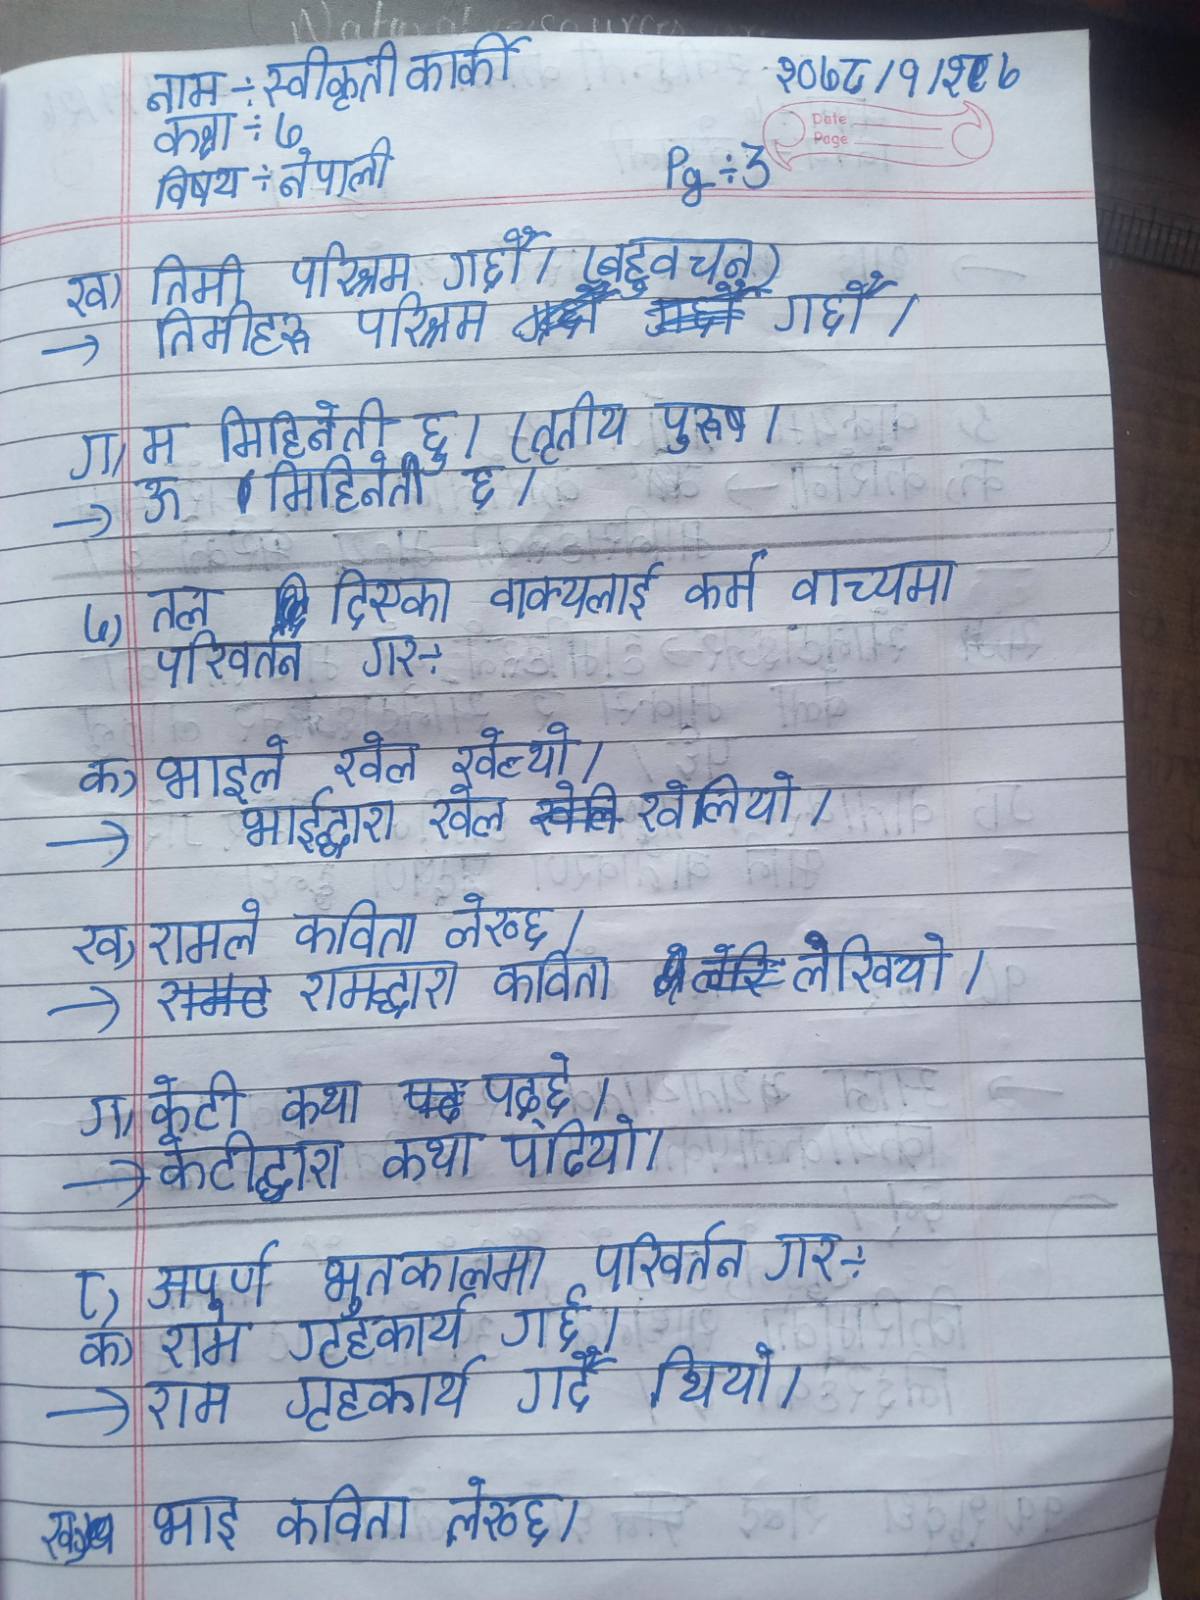 Natural resources
नाम ÷ स्वीकृती कार्की
२०७८/१/२८
कक्षा ÷ ७
Date
Page
विषय ÷ नेपाली
Pg ÷ 3
ख) तिमी परिश्रम गर्छौ। (बहुवचन)
→ तिमीहरू परिश्रम गर्छौ।
ग) म मिहिनेती छु। (तृतीय पुरूष।
→ ऊ मिहिनेती छ।
७) तल दिएका वाक्यलाई कर्म वाच्यमा
परिवर्तन गर÷
क) भाइले खेल खेल्यो।
→ भाईद्वारा खेल खेलियो।
ख) रामले कविता लेख्छ।
→ रामद्धारा कविता लेखियो।
ग) केटी कथा पढ्छे।
→ केटीद्धारा कथा पढियो।
८) अपुर्ण भुतकालमा परिवर्तन गर÷
क) राम गृहकार्य गर्छ।
→ राम गृहकार्य गर्दै थियो।
ख) भाइ कविता लेख्छ।